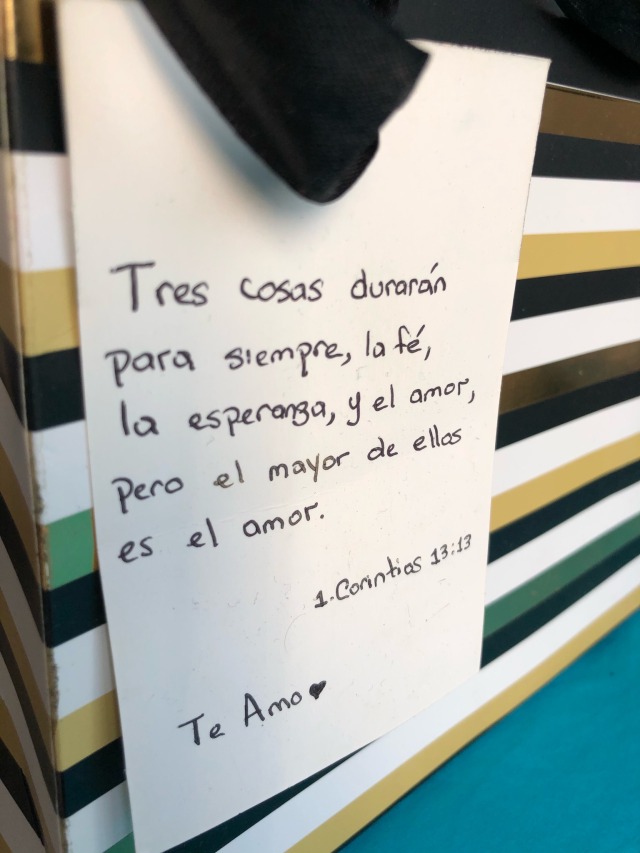 Tres cosas durarán
para siempre, la fé,
la esperanza, y el amor,
pero el mayor de ellos
es el amor.
1.Corintios 13:13
Te Amo♥